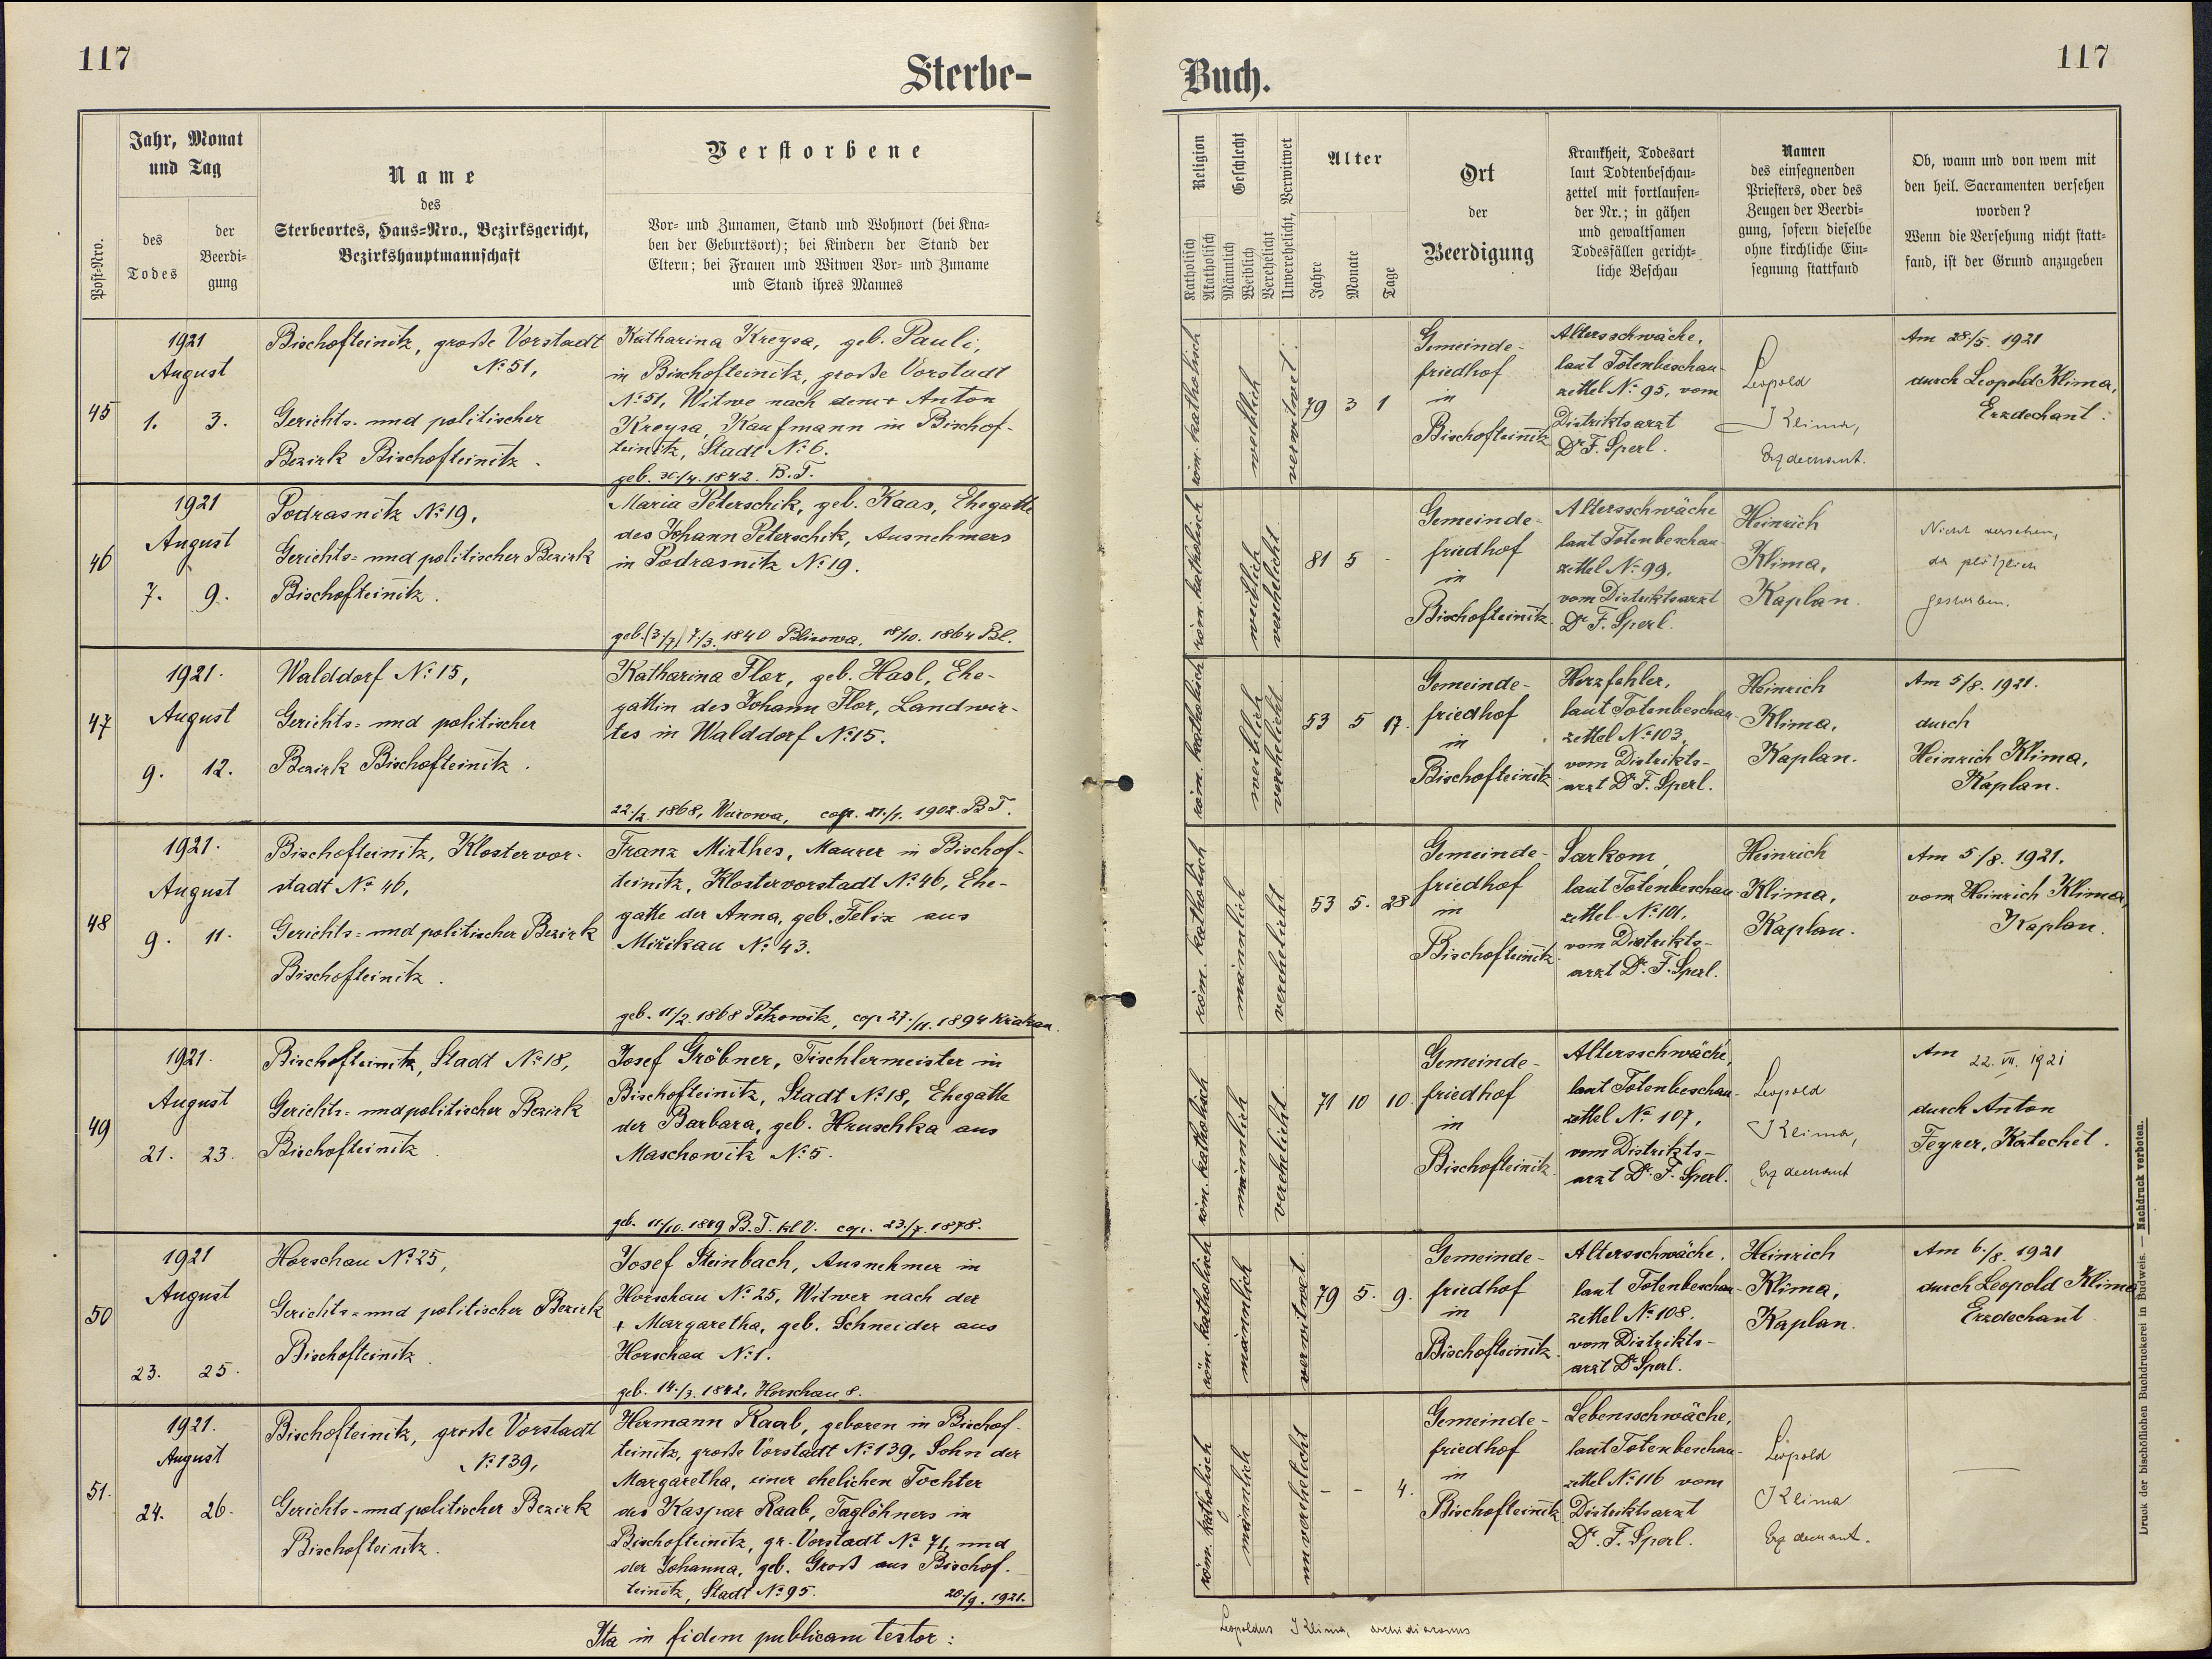 117
Sterbe-
Jahr, Monat
und Tag
Name
des
Sterbeortes, Haus=Nro., Bezirksgericht,
Bezirkshauptmannschaft
Verstorbene
Post=Nro.
des
Todes
der
Beerdi=
gung
Vor= und Zunamen, Stand und Wohnort (bei Kna=
ben der Geburtsort); bei Kindern der Stand der
Eltern; bei Frauen und Witwen Vor= und Zuname
und Stand ihres Mannes
45
1921
August
1. 3.
Bischofteinitz, große Vorstadt
№ 51,
Gerichts- und politischer
Bezirk Bischofteinitz.
Katharina Kreysa, geb. Pauli,
in Bischofteinitz, große Vorstadt
№ 51, Witwe nach dem + Anton
Kreysa, Kaufmann in Bischof-
teinitz, Stadt № 6.
geb. 30./4. 1842. B.T.
46
1921
August
7. 9.
Podrasnitz № 19,
Gerichts= und politischer Bezirk
Bischofteinitz.
Maria Peterschik, geb. Kaas, Ehegatte
des Johann Peterschik, Ausnehmers
in Podrasnitz № 19.
geb. (3/7) 7./3. 1840 Blisowa. 18/10. 1864 Bl.
47
1921.
August
9. 12.
Walddorf № 15,
Gerichts= und politischer
Bezirk Bischofteinitz.
Katharina Flor, geb. Hasl, Ehe-
gattin des Johann Flor, Landwir-
tes in Walddorf № 15.
22./2. 1868, cop. 21./1. 1902. B T.
48
1921.
August
9. 11.
Bischofteinitz, Klostervor-
stadt № 46,
Gerichts= und politischer Bezirk
Bischofteinitz.
Franz Mirthes, Maurer in Bischof-
teinitz, Klostervorstadt № 46, Ehe-
gatte der Anna, geb. Felix aus
Mirikau № 43.
geb. 11/2. 1868 cop. 27./11. 1894
49
1921.
August
21. 23.
Bischofteinitz, Stadt № 18,
Gerichts= und politischer Bezirk
Bischofteinitz
Josef Gröbner, Tischlermeister in
Bischofteinitz, Stadt № 18, Ehegatte
der Barbara, geb. Hruschka aus
Maschowitz № 5.
geb. 11/10. 1849 B.T. kl V. cop. 23./7. 1878.
50
1921
August
23. 25.
Horschau № 25,
Gerichts= und politischer Bezirk
Bischofteinitz.
Josef Steinbach, Ausnehmer in
Horschau № 25, Witwer nach der
+ Margaretha, geb. Schneider aus
Horschau № 1.
geb. 14./3. 1842, Horschau 8.
51.
1921.
August
24. 26.
Bischofteinitz, große Vorstadt
№ 139,
Gerichts- und politischer Bezirk
Bischofteinitz.
Hermann Raab, geboren in Bischof-
teinitz, große Vorstadt № 139, Sohn der
Margaretha, einer ehelichen Tochter
des Kaspar Raab, Taglöhners in
Bischofteinitz, gr. Vorstadt № 71, und
der Johanna, geb. Groß aus Bischof-
teinitz, Stadt № 95.
20/9. 1921.
Ita in fidem publicam testor:
117
Buch.
Religion
Katholisch
Akatholisch
Geschlecht
Männlich
Weiblich
Verehelicht
Unverehelicht, Verwitwet
Alter
Jahre
Monate
Tage
Ort
der
Beerdigung
Krankheit, Todesart
laut Todtenbeschau=
zettel mit fortlaufen=
der Nr.; in gähen
und gewaltsamen
Todesfällen gericht=
liche Beschau
Namen
des einsegnenden
Priesters, oder des
Zeugen der Beerdi=
gung, sofern dieselbe
ohne kirchliche Ein=
segnung stattfand
Ob, wann und von wem mit
den heil. Sacramenten versehen
worden?
Wenn die Versehung nicht statt=
fand, ist der Grund anzugeben
röm. katholisch
weiblich
verwitwet.
79 3 1
Gemeinde-
friedhof
in
Bischofteinitz
Altersschwäche,
laut Totenbeschau-
zettel № 95, vom
Distriktsarzt
Dr F. Sperl.
Leopold
Klima,
Erzdechant.
Am 28./5. 1921
durch Leopold Klima,
Erzdechant.
röm. katholisch
weiblich
verehelicht
81 5 -
Gemeinde-
friedhof
in
Bischofteinitz.
Altersschwäche
laut Totenbeschau-
zettel № 99,
vom Distriktsarzt
Dr F. Sperl.
Heinrich
Klima,
Kaplan.
Nicht versehen,
da plötzlich
gestorben.
röm. katholisch
weiblich
verehelicht.
53 5 17.
Gemeinde-
friedhof
in
Bischofteinitz
Herzfehler,
laut Totenbeschau-
zettel № 103,
vom Distrikts-
arzt Dr F. Sperl.
Heinrich
Klima,
Kaplan.
Am 5/8. 1921.
durch
Heinrich Klima,
Kaplan.
röm. katholisch
männlich
verehelicht.
53 5. 28
Gemeinde-
friedhof
in
Bischofteinitz.
Sarkom,
laut Totenbeschau-
zettel № 101,
vom Distrikts-
arzt Dr. F. Sperl.
Heinrich
Klima,
Kaplan.
Am 5/8. 1921.
vom Heinrich Klima,
Kaplan.
röm. katholisch
männlich
verehelicht.
71 10 10.
Gemeinde-
friedhof
in
Bischofteinitz.
Altersschwäche,
laut Totenbeschau-
zettel № 107,
vom Distrikts-
arzt Dr. F. Sperl.
Leopold
Klima,
Erzdechant
Am 22. VII. 1921
durch Anton
Feyrer, Katechet.
röm. katholisch
männlich
verwitwet.
79 5. 9.
Gemeinde-
friedhof
in
Bischofteinitz.
Altersschwäche.
laut Totenbeschau-
zettel № 108.
vom Distrikts-
arzt Dr Sperl.
Heinrich
Klima,
Kaplan.
Am 6./8. 1921
durch Leopold Klima
Erzdechant
röm. katholisch
männlich
unverehelicht
- - 4.
Gemeinde-
friedhof
in
Bischofteinitz
Lebensschwäche,
laut Totenbeschau-
zettel № 116 vom
Distriktsarzt
Dr. F. Sperl.
Leopold
Klima
Erzdechant.
Leopoldus Klima, archidiaconus
Druck der bischöflichen Buchdruckerei in Budweis. — Nachdruck verboten.